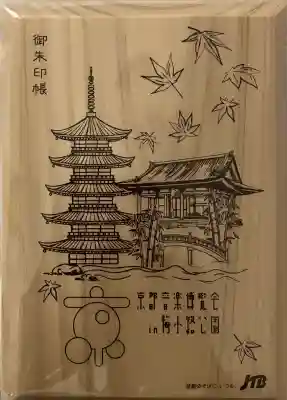 御朱印帳
京都音楽博覧会
in 梅小路公園
JTB